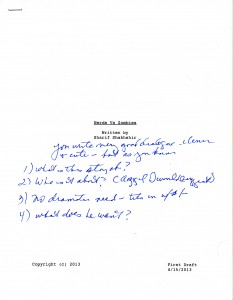 Nerds Vs Zombies
Written by
Sharif Shakhshir
you write very good dialogue - clever
+ cute - but as you know
1) what is this story about?
2) Who is it about? (
3) No dramatic need -
4) what does he want?
Copyright (c) 2013
First Draft
6/15/2013